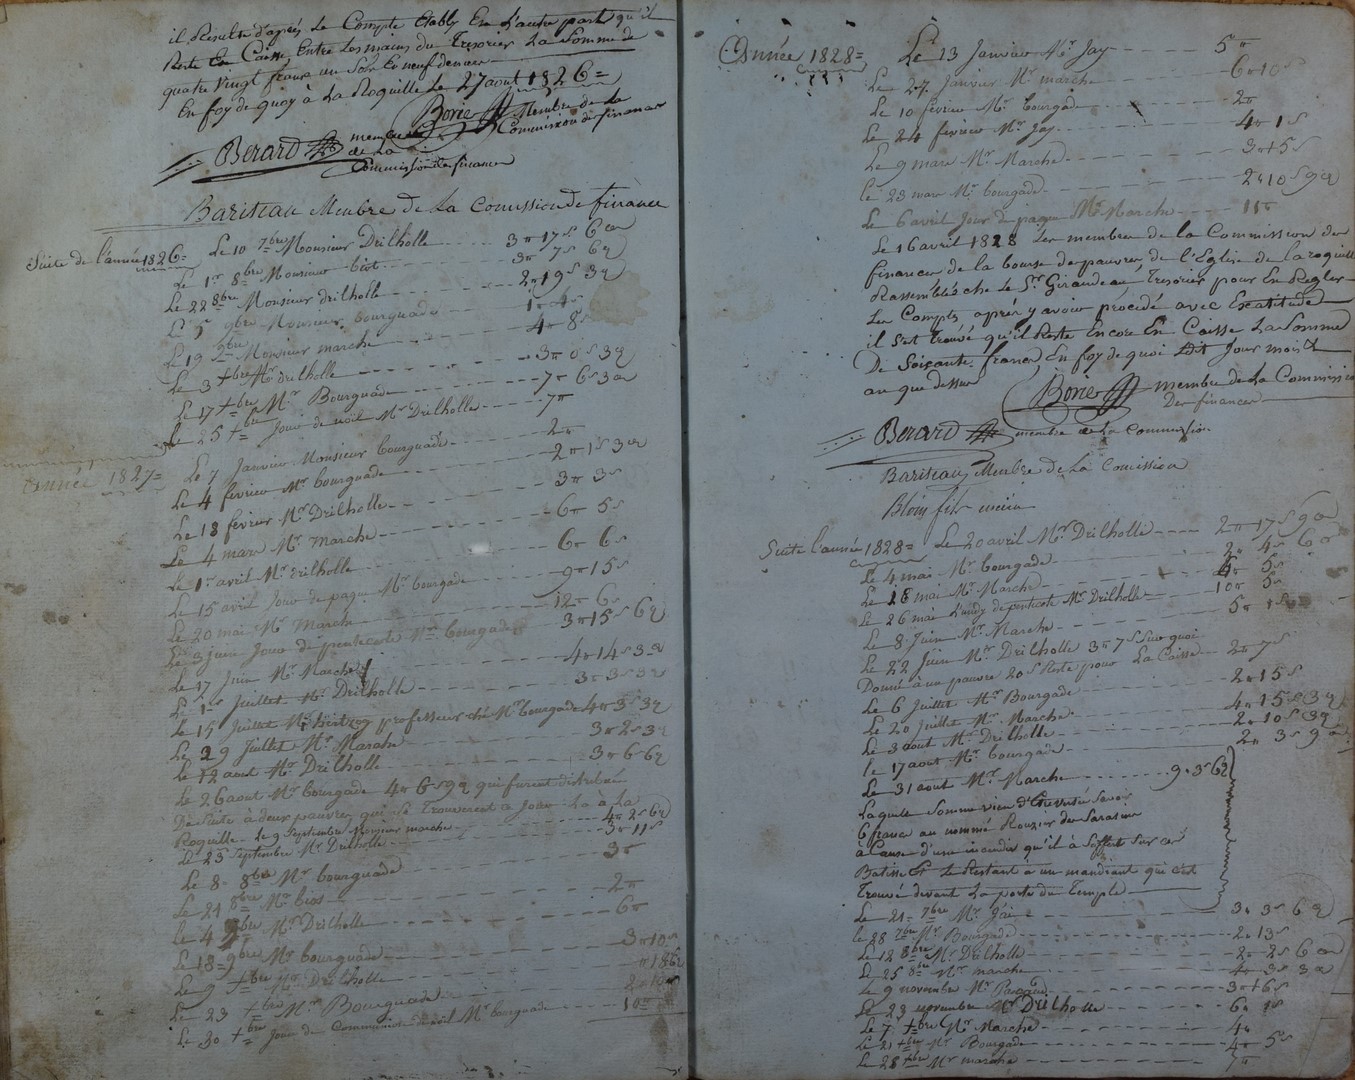 il Resulte d'après Le Compte Etably En L'autre part qu'il
Reste En Caisse, Entre Les mains du Tresorier La Somme de
quatre Vingt francs un Sol Et neuf deniers
En foy de quoy à La Roquille Le 27 aout 1826 =
Borie Membre de La
Commission de finances
Berard membre
de La
Commission de finance
Bariteau Menbre de La Comission de finance
Suite de l'année 1826 = Le 10 7bre Monsieur Drilholle 3 17 s 6
Le 1er 8bre Monsieur biot 3 7 s 6
Le 22 8bre Monsieur drilholle 2 19 s 3
Le 5 9bre Monsieur bourguade 1 4 s
Le 19 9bre Monsieur marche 4 8 s
Le 3 +bre Mr drilholle 3 0 s 3
Le 17 +bre Mr Bourguade 7 6 s 3
Le 25 +bre Jour de noël Mr Drilholle 7
Année 1827 = Le 7 Janvier Monsieur bourguade 2
Le 4 fevrier Mr bourguade 2 1 s 3
Le 18 fevrier Mr Drilholle 3 3 s
Le 4 mars Mr marche 6 5 s
Le 1er avril Mr drilholle 6 6 s
Le 15 avril Jour de paque Mr bourgade 9 15 s
Le 20 mai Mr Marche 12 6 s
Le 3 juin Jour de pentecoste Mr bourgade 3 15 s 6
Le 17 Juin Mr Marche 4 14 s 3
Le 1er Juillet Mr Drilholle 3 3 s 3
Le 15 Juillet Mr hertzog professeur ché Mr bourgade 4 3 s 3
Le 29 Juillet Mr Marche 3 2 s 3
Le 12 aout Mr Drilholle 3 6 6
Le 26 aout Mr bourgade 4 6 s 9 qui furent distribué
De Suite à deux pauvres qui Se Trouverent a Jour La à La
Roquille Le 9 Septembre Monsieur marche 4 2 s 6
Le 23 Septembre Mr Drilholle 3 11 s
Le 8 8bre Mr bourguade 3
Le 21 8bre Mr bios 2
Le 4 9bre Mr Drilholle 6
Le 18 9bre Mr bourguade 3 10 s
Le 9 +bre Mr Drilholle 18 6
Le 23 +bre Mr Bourguade 2 10
Le 30 +bre Jour de Communion de noël Mr bourguade 10
Année 1828 = Le 13 Janvier Mr Jay 5
Le 27 Janvier Mr marche 6 10 s
Le 10 fevrier Mr bourgade 2
Le 24 fevrier Mr Jay 4 1 s
Le 9 mars Mr Marche 3 5 s
Le 23 mars Mr bourgade 2 10 s 9
Le 6 avril Jour de paque Mr Marche 11
Le 16 avril 1828 Les membres de La Commission des
finances de La bourse des pauvres de L'Eglise de La roquille
Rassemblés ché Le Sr Giraudeau, Tresorier pour En Regler
Les Comptes après y avoir procédé avec Exatitude
il s'est trouvé qu'il Reste Encore En Caisse La Somme
De Soixante francs, En foy de quoi Ledit Jour mois Et
an que dessus
Borie membre de La Commission
Des finances
Berard membre de La Commission
Bariteau Menbre de La Comission
Blouy fils
Suite L'année 1828 = Le 20 avril Mr Drilholle 2 17 s 9
Le 4 mai Mr bourgade 2 4 s 6
Le 18 mai Mr Marche 4 5 s
Le 26 mai Lundy de pentecote Mr Drilholle 10 5 s
Le 8 Juin Mr Marche 5 1 s
Le 22 Juin Mr Drilholle 3 7 s Sur quoi
Donné à un pauvre 20 s Reste pour La Caisse 2 7 s
Le 6 Juillet Mr Bourgade 2 15 s
Le 20 Juillet Mr Marche 4 15 s 3
Le 3 aout Mr Drilholle 2 10 s 3
le 17 aout Mr bourgade 2 3 s 9
Le 31 aout Mr Marche 9 3 s 6
Laquelle Somme vien d'Etre Savoir
6 francs au nommé Rouzier de Sarasine
à Cause d'une incendie qu'il à Souffert Sur Ces
Batisse Et Le Restant a un mandiant qui c'est
Trouvé devant La porte du Temple
Le 21 7bre Mr Jai 3 3 s 6
Le 28 7bre Mr Bourgade 2 13 s
Le 12 8bre Mr Drilholle 2 2 s 6
Le 25 8bre Mr marche 4 3 s 3
Le 9 novembre Mr 3 6 s
Le 23 novembre Mr Drilholle 6 1 s
Le 7 +bre Mr Marche 4
Le 21 +bre Mr Bourgade 4 5 s
Le 28 +bre Mr marche 7